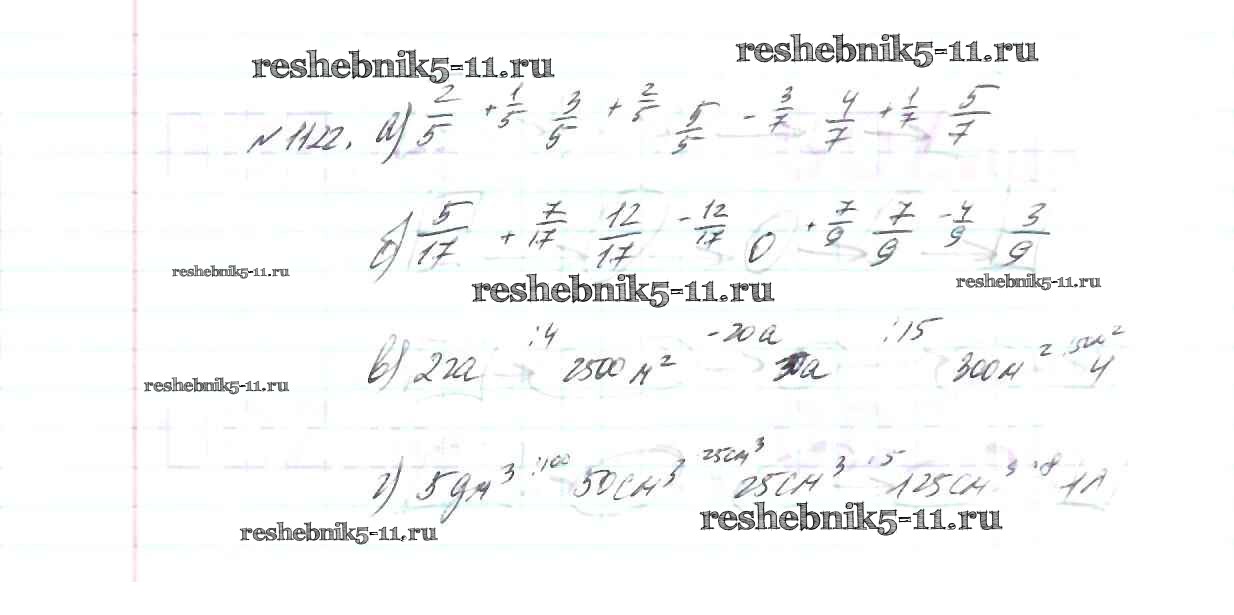 reshebnik5-11.ru
reshebnik5-11.ru
№1122. а) 2/5 +1/5 3/5 +2/5 5/5 -3/7 4/7 +1/7 5/7
б) 5/17 +7/17 12/17 -12/17 0 +7/9 7/9 -4/9 3/9
reshebnik5-11.ru
reshebnik5-11.ru
reshebnik5-11.ru
в) 2га :4 2500м² -20а а :15 300м² 4
reshebnik5-11.ru
г) 5дм³ :100 50см³ 25см³ 25см³ ·5 125см³ ·8 1л
reshebnik5-11.ru
reshebnik5-11.ru